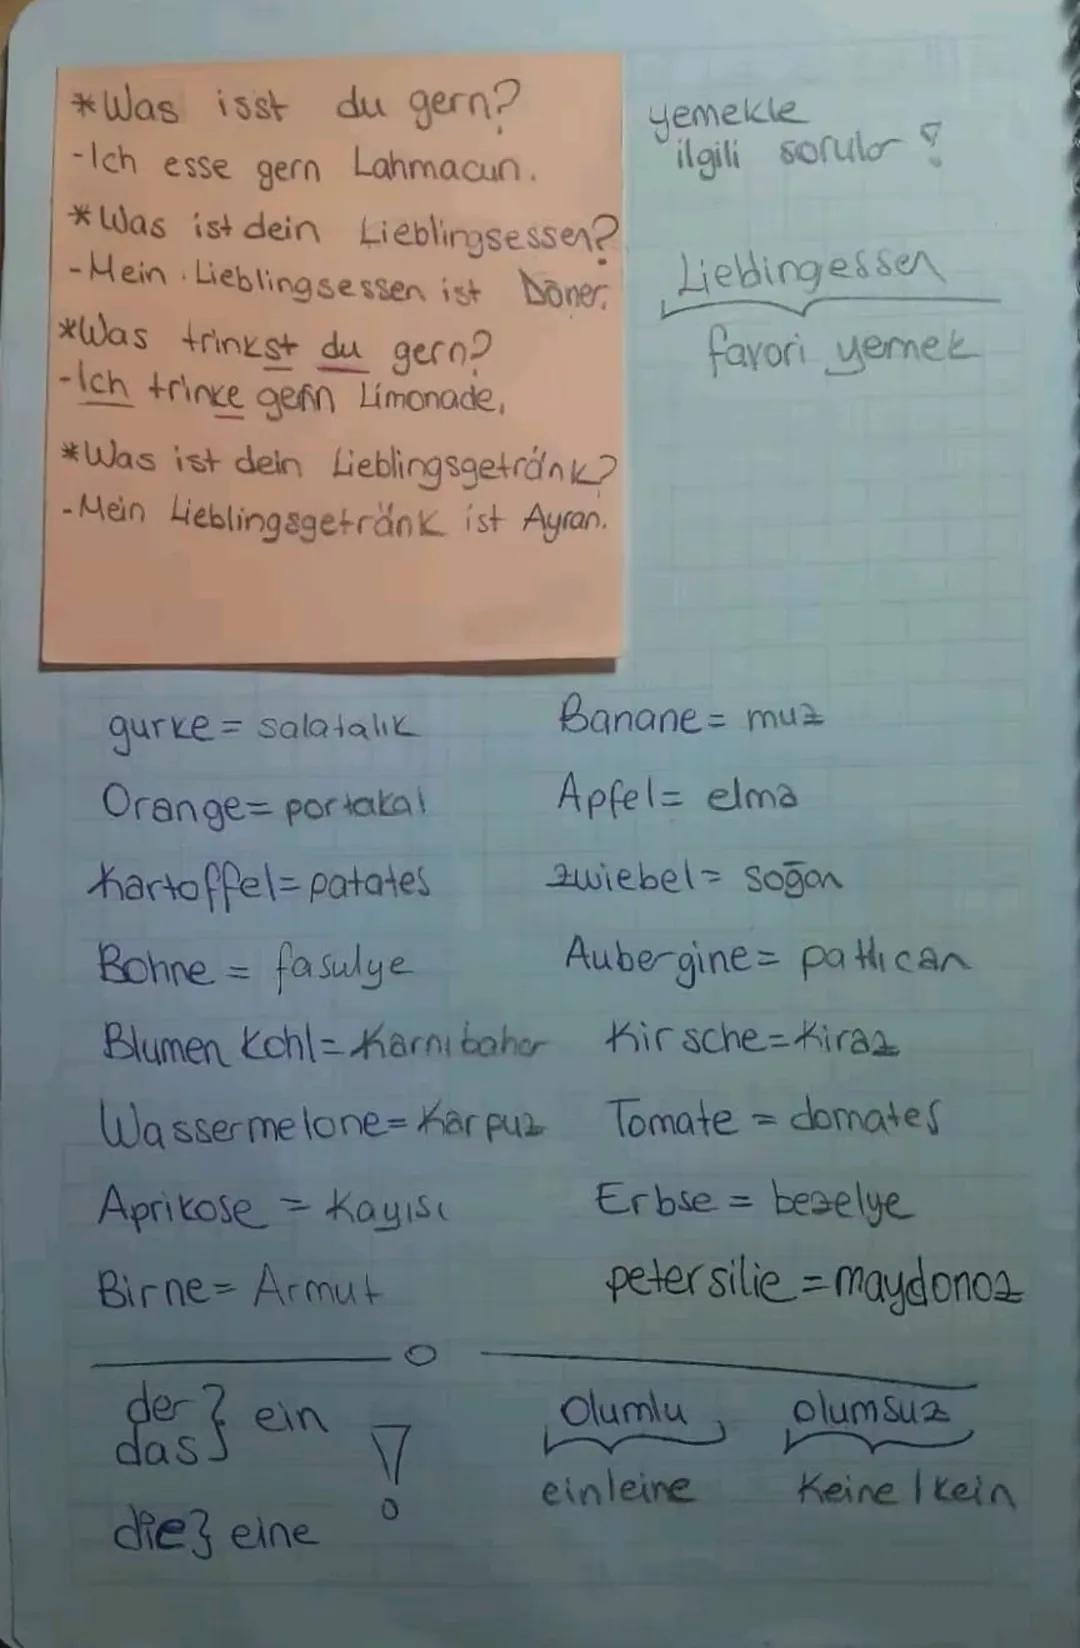 *Was isst du gern?
-Ich esse gern Lahmacun.
*Was ist dein Lieblingsessen?
-Mein Lieblingsessen ist Döner.
*Was trinkst du gern?
-Ich trinke gern Limonade,
*Was ist dein Lieblingsgetränk?
-Mein Lieblingsgetränk ist Ayran.
yemekle
ilgili sorular !
Lieblingessen
favori yemek
gurke = salatalık
Banane = muz
Orange = portakal
Apfel = elma
Kartoffel = patates
zwiebel = soğan
Bohne = fasulye
Aubergine = patlıcan
Blumen kohl = Karnıbahar
Kirsche = Kiraz
Wassermelone = Karpuz
Tomate = domates
Aprikose = Kayısı
Erbse = bezelye
Birne = Armut
petersilie = maydonoz
der } ein
das
die } eine
!
Olumlu
olumsuz
ein/eine
Keine / kein